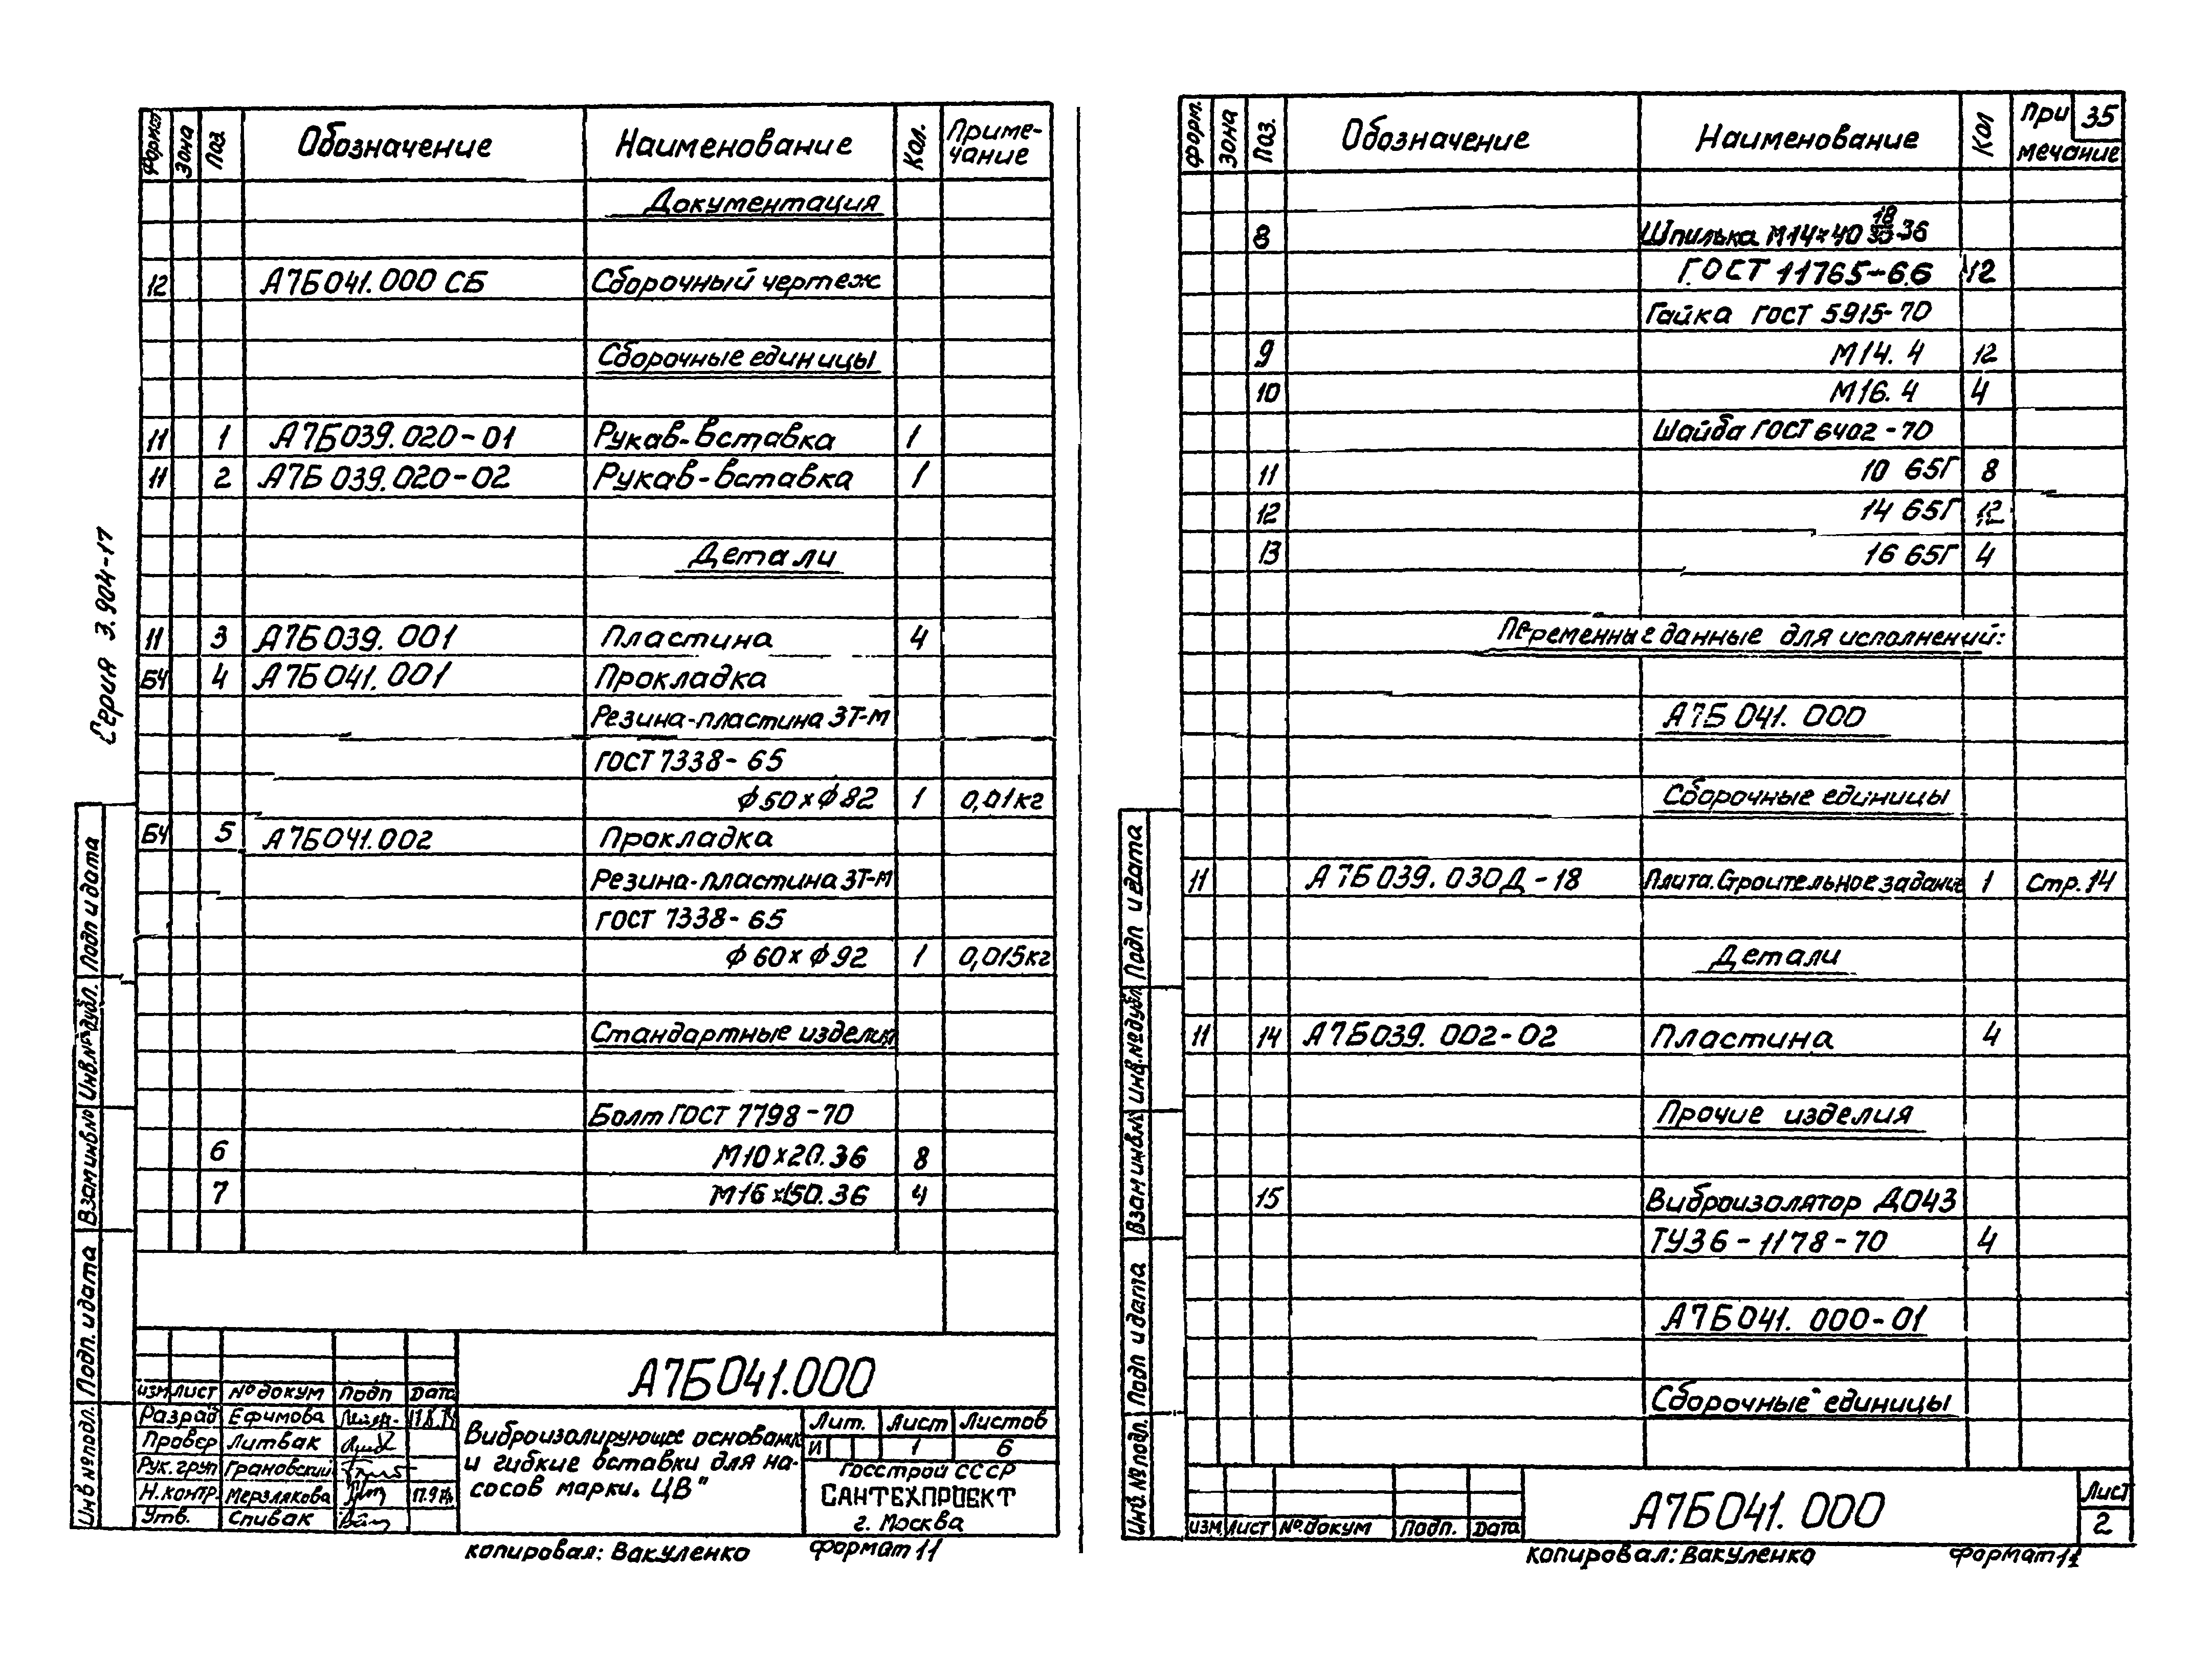 Серия 3.904-17
Формат Зона Поз. Обозначение Наименование Кол. Приме-
чание
Документация
12 А7Б041.000 СБ Сборочный чертеж
Сборочные единицы
11 1 А7Б039.020-01 Рукав-вставка 1
11 2 А7Б039.020-02 Рукав-вставка 1
Детали
11 3 А7Б039.001 Пластина 4
БЧ 4 А7Б041.001 Прокладка
Резина-пластина 3Т-М
ГОСТ 7338-65
ф50хф82 1 0,01кг
БЧ 5 А7Б041.002 Прокладка
Резина-пластина 3Т-М
ГОСТ 7338-65
ф60хф92 1 0,015кг
Стандартные изделия
Болт ГОСТ 7798-70
6 М10х20.36 8
7 М16х150.36 4
А7Б041.000
Изм Лист № докум Подп Дата
Разраб Ефимова
Провер Литвак
Рук. груп Грановский
Н.контр. Мерзлякова
Утв. Спивак
Виброизолирующее основание
и гибкие вставки для на-
сосов марки „ЦВ"
Лит. Лист Листов
И 1 6
Госстрой СССР
САНТЕХПРОЕКТ
г. Москва
копировал: Вакуленко формат 11
Инв № подл. Подп. и дата Взам инв № Инв. № дубл. Подп и дата
Форм. Зона Поз. Обозначение Наименование Кол При
мечание
35
8 Шпилька М14х40 18/30 .36
ГОСТ 11765-66 12
Гайка ГОСТ 5915-70
9 М14.4 12
10 М16.4 4
Шайба ГОСТ 6402-70
11 10 65Г 8
12 14 65Г 12
13 16 65Г 4
Переменные данные для исполнений:
А7Б041.000
Сборочные единицы
11 А7Б039.030Д-18 Плита. Строительное задание 1 Стр. 14
Детали
11 14 А7Б039.002-02 Пластина 4
Прочие изделия
15 Виброизолятор ДО43
ТУ36-1178-70 4
А7Б041.000-01
Сборочные единицы
Изм Лист № докум Подп. Дата
А7Б041.000
Лист
2
копировал: Вакуленко формат 11
Инв. № подл. Подп и дата Взам инв № Инв. № дубл Подп и дата